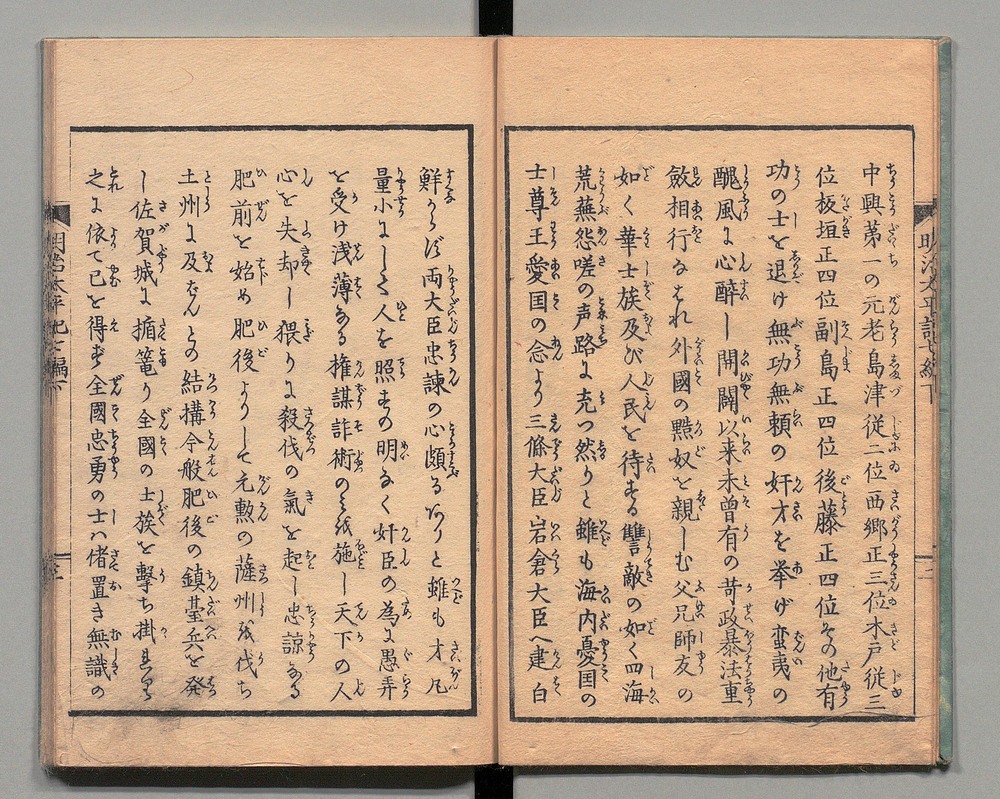 中興第一の元老島津従二位西郷正三位木戸従三
位板垣正四位副島正四位後藤正四位その他有
功の士を退け無功無頼の奸才を挙げ蛮夷の
醜風に心酔し開闢以来未曽有の苛政暴法重
斂相行なはれ外國の黠奴を親しむ父兄師友の
如く華士族及び人民を待する讐敵の如く四海
荒蕪怨嗟の声路に充つ然りと雖も海内憂国の
士尊王愛国の念より三條大臣岩倉大臣へ建白
鮮からず両大臣忠諫の心頗るありと雖も才凡
量小にして人を照すの明なく奸臣の為に愚弄
を受け浅薄なる権謀詐術のみを施し天下の人
心を失却し猥りに殺伐の氣を起し忠諒なる
肥前を始め肥後よりして元勲の薩州を伐ち
土州に及ばんとの結構今般肥後の鎮䑓兵を発
し佐賀城に楯篭り全國の士族を撃ち掛
之に依て已を得ず全國忠勇の士ハ偖置き無識の
明治太平記七編下